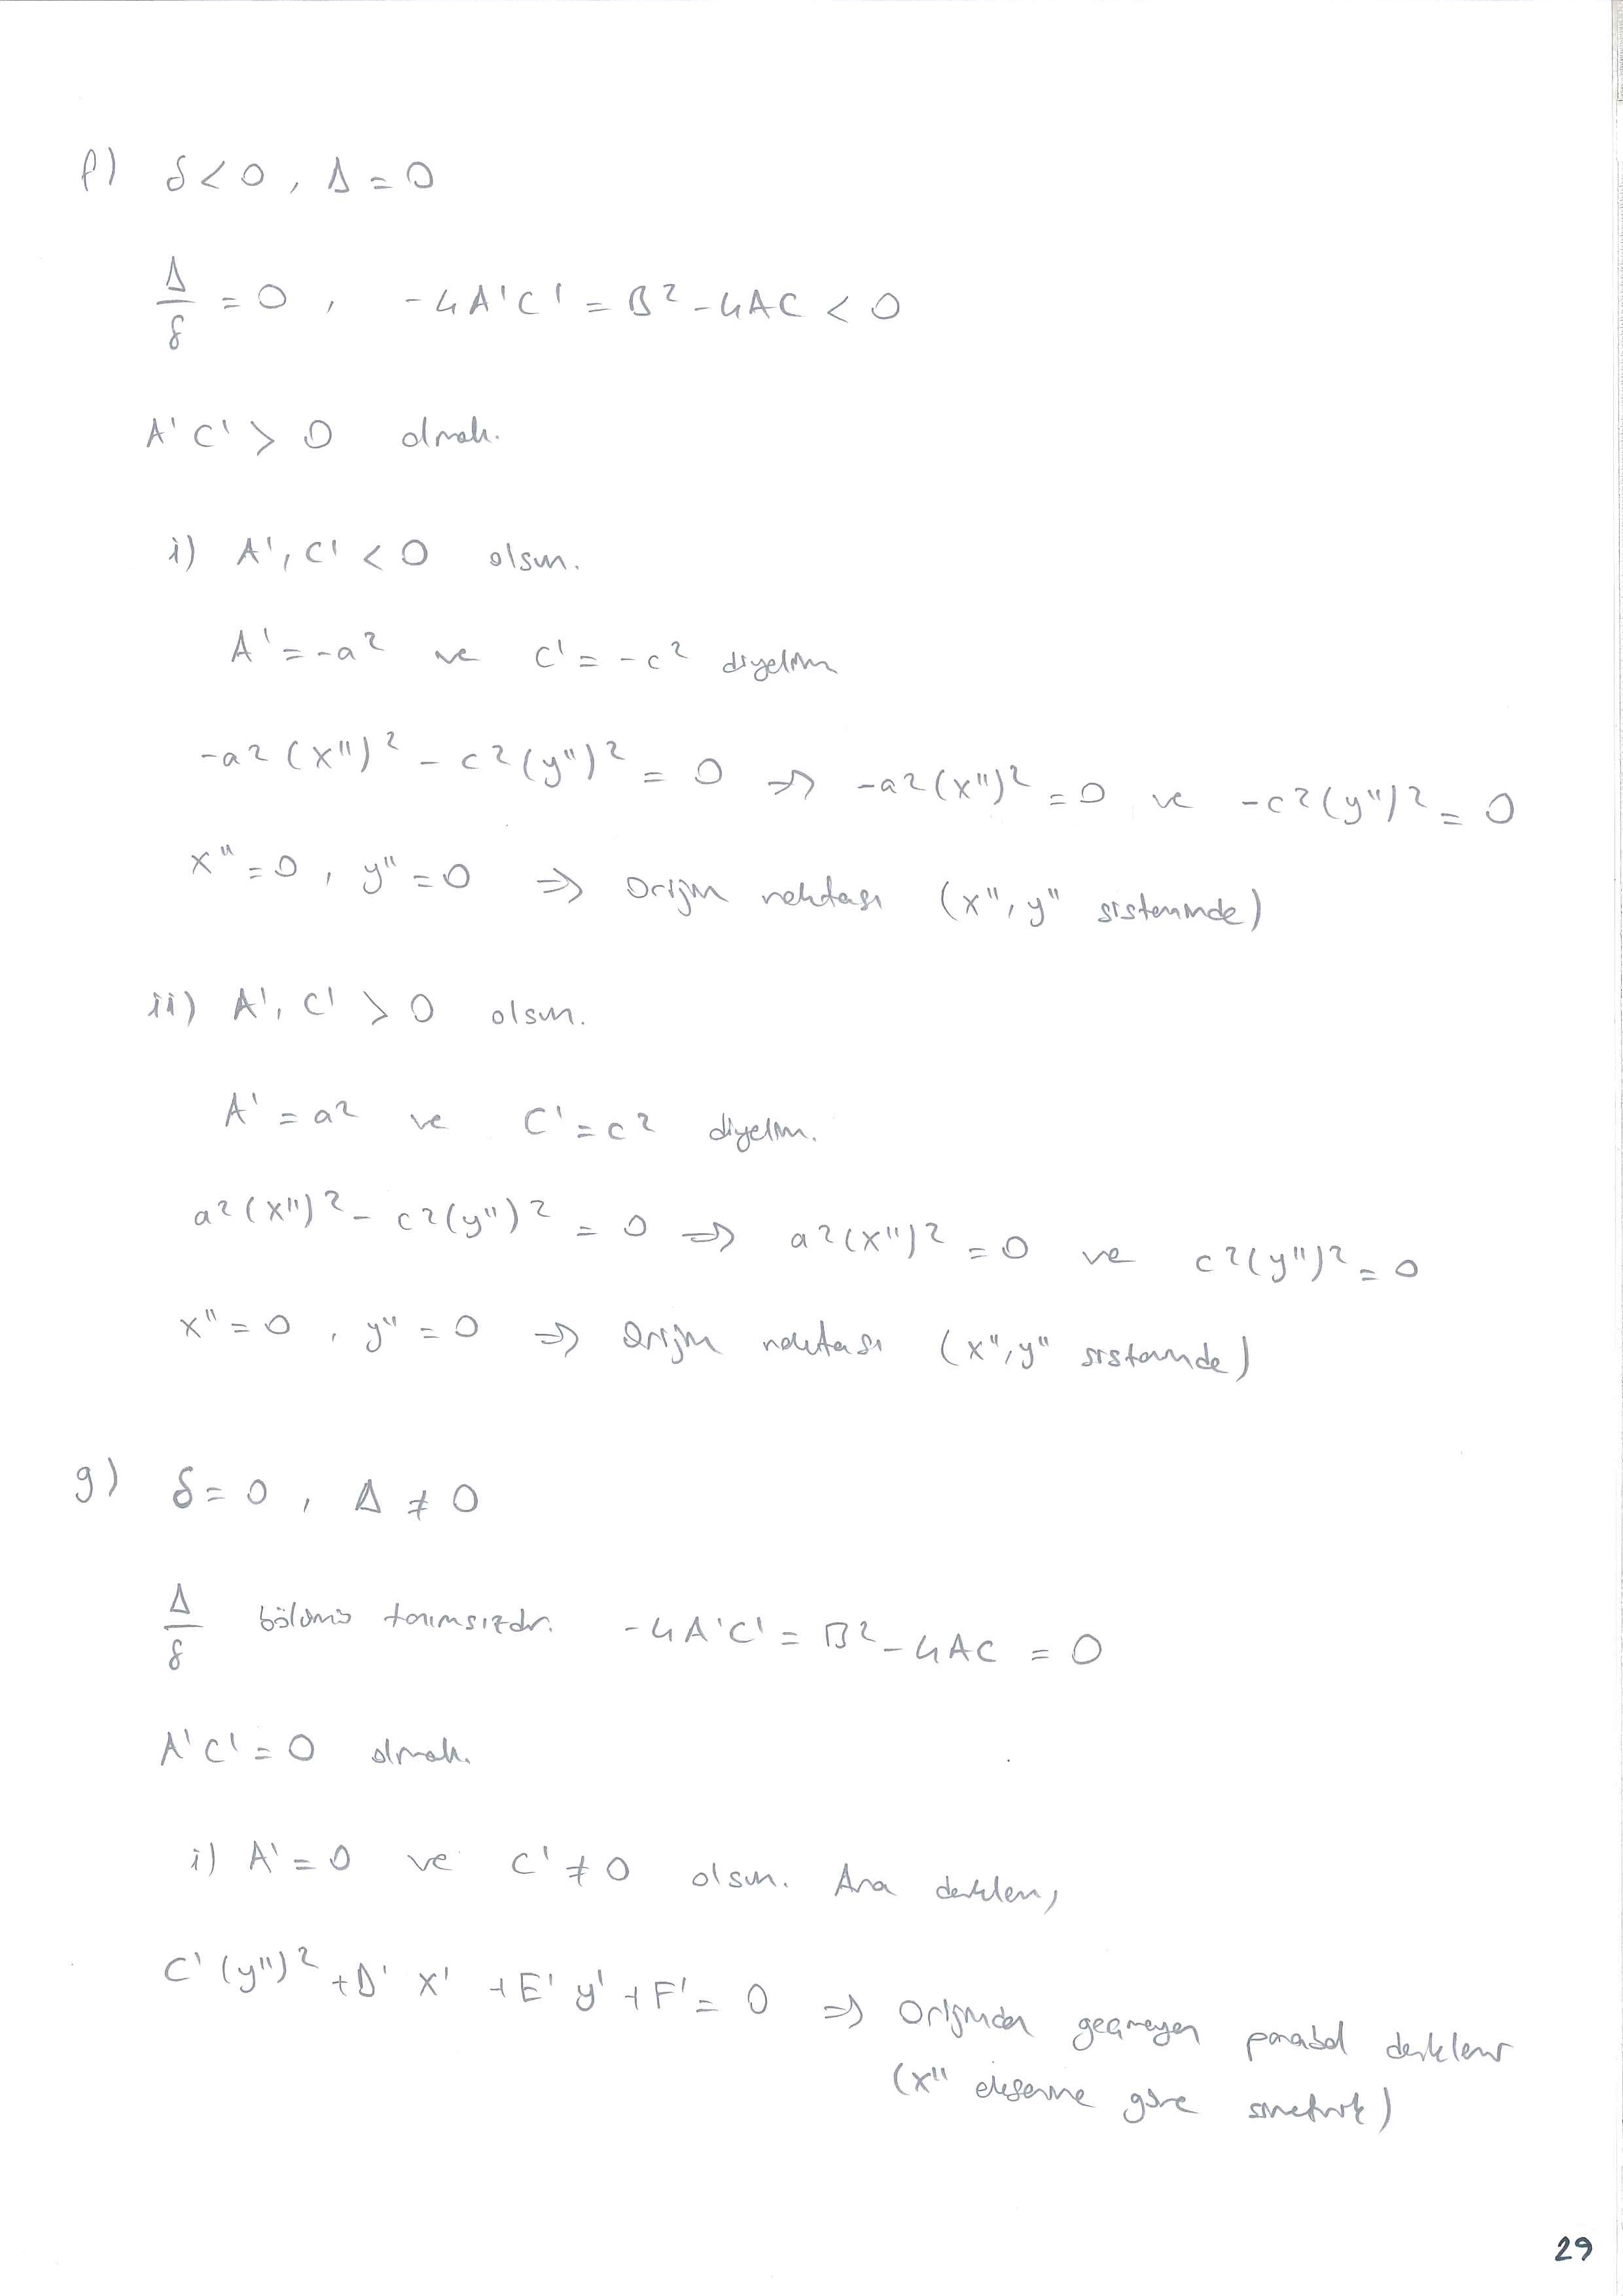 f) δ < 0 , Δ = 0
Δ/δ = 0 , -4A'C' = B² - 4AC < 0
A'C' > 0 olmalı.
i) A', C' < 0 olsun.
A' = -a² ve C' = -c² diyelim
-a²(x'')² - c²(y'')² = 0 ⇒ -a²(x'')² = 0 ve -c²(y'')² = 0
x'' = 0 , y'' = 0 ⇒ Orijin noktası (x'', y'' sisteminde)
ii) A', C' > 0 olsun.
A' = a² ve C' = c² diyelim.
a²(x'')² - c²(y'')² = 0 ⇒ a²(x'')² = 0 ve c²(y'')² = 0
x'' = 0 , y'' = 0 ⇒ Orijin noktası (x'', y'' sisteminde)
g) δ = 0 , Δ ≠ 0
Δ/δ bölümü tanımsızdır. -4A'C' = B² - 4AC = 0
A'C' = 0 olmalı.
i) A' = 0 ve C' ≠ 0 olsun. Ana denklem,
C'(y'')² + D' x' + E' y' + F' = 0 ⇒ Orijinden geçmeyen parabol denklemi
(x'' eksenine göre simetrik)
29